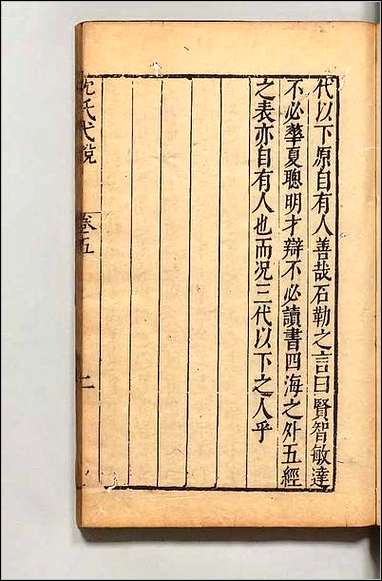 代以下原自有人善哉石勒之言曰賢智敏達
不必華夏聰明才辯不必讀書四海之外五經
之表亦自有人也而况三代以下之人乎
沈氏弋說
卷五
二